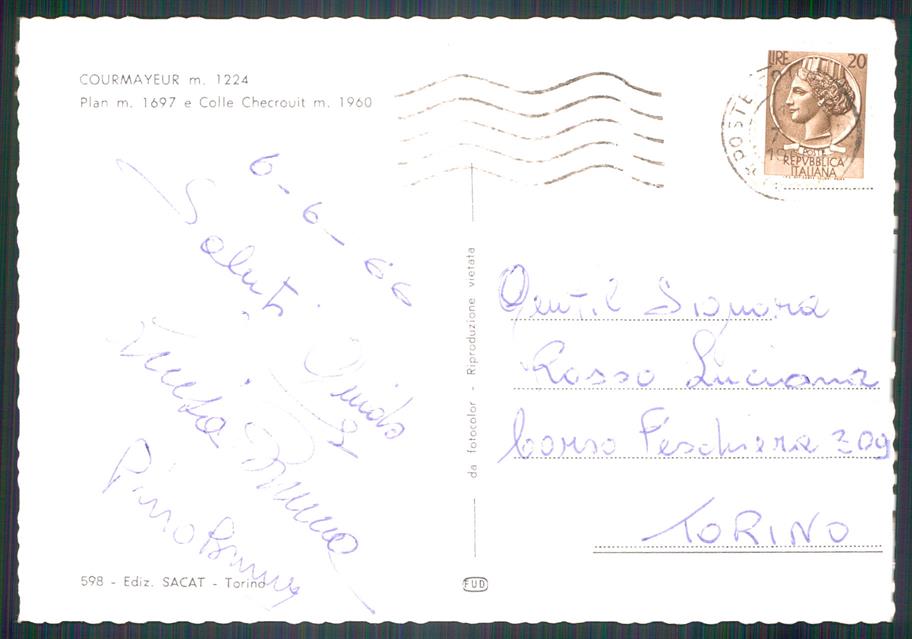 COURMAYEUR m. 1224
Plan m. 1697 e Colle Checrouit m. 1960
LIRE 20
POSTE
REPVBBLICA
ITALIANA
POSTE
6-6-66
Saluti
Guido
Pino
da fotocolor - Riproduzione vietata
Gentil Signora
Rosso Luciana
Corso Peschiera 309
TORINO
598 - Ediz. SACAT - Torino
FUD